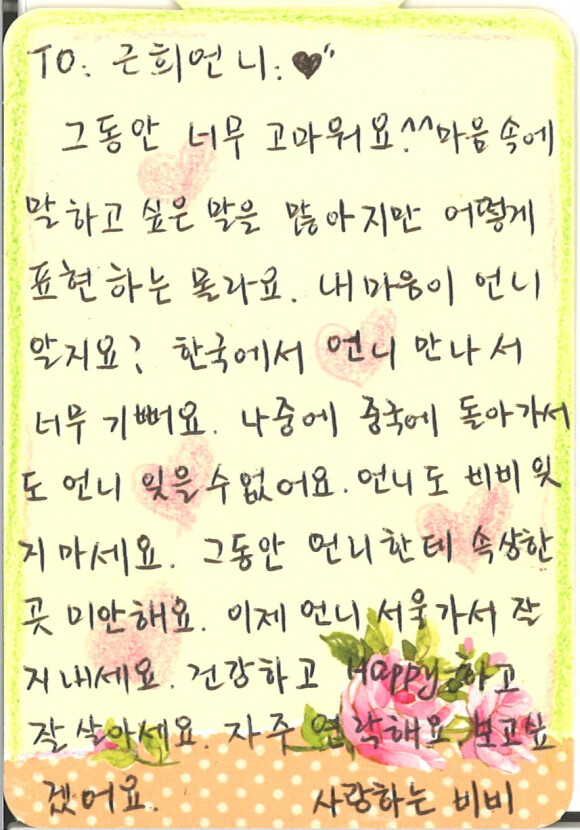 TO: 근희언니:♥"
그동안 너무 고마워요!^^마음속에
말하고 싶은 말을 많아지만 어떻게
표현하는 몰라요. 내마음이 언니
알지요? 한국에서 언니 만나서
너무 기뻐요. 나중에 중국에 돌아가서
도 언니 잊을수없어요. 언니도 비비잊
지마세요. 그동안 언니한테 속상한
곳 미안해요. 이제 언니 서울가서 잘
지내세요. 건강하고 Happy하고
잘살아세요. 자주 연락해요 보고싶
겠어요. 사랑하는 비비